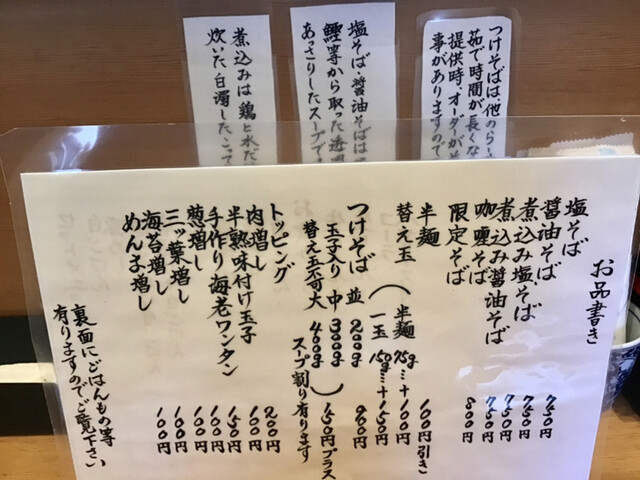 つけそばは、他の
茹で時間が長く
提供時、オーダーが
事がありますので
塩そば・醤油そばは
鰹等から取った透
あっさりしたスープで
煮込みは鶏と水だ
炊いた白濁した、こって
お品書き
塩そば 750円
醤油そば 750円
煮込み塩そば 750円
煮込み醤油そば 750円
咖喱そば 800円
限定そば
半麺 100円引き
替え玉（半麺 75g…+100円
一玉 150g…+150円
つけそば 並 200g 900円
玉子入り 中 300g
替え玉不可 大 400g ）150円プラス
スープ割り有ります
トッピング
肉増し 200円
半熟味付け玉子 100円
手作り海老ワンタン 150円
葱増し 100円
三ッ葉増し 100円
海苔増し 100円
めんま増し 100円
裏面にごはんもの等
有りますのでご覧下さい